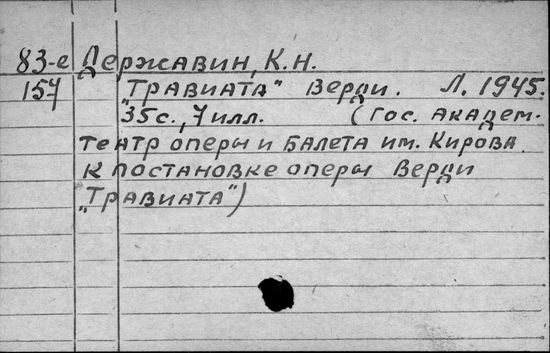 83-е Державин, К.Н.
157 „Травиата" Верди. Л. 1945.
35с., 7 илл. (Гос. академ.
театр оперы и балета им. Кирова.
К постановке оперы Верди
„Травиата")